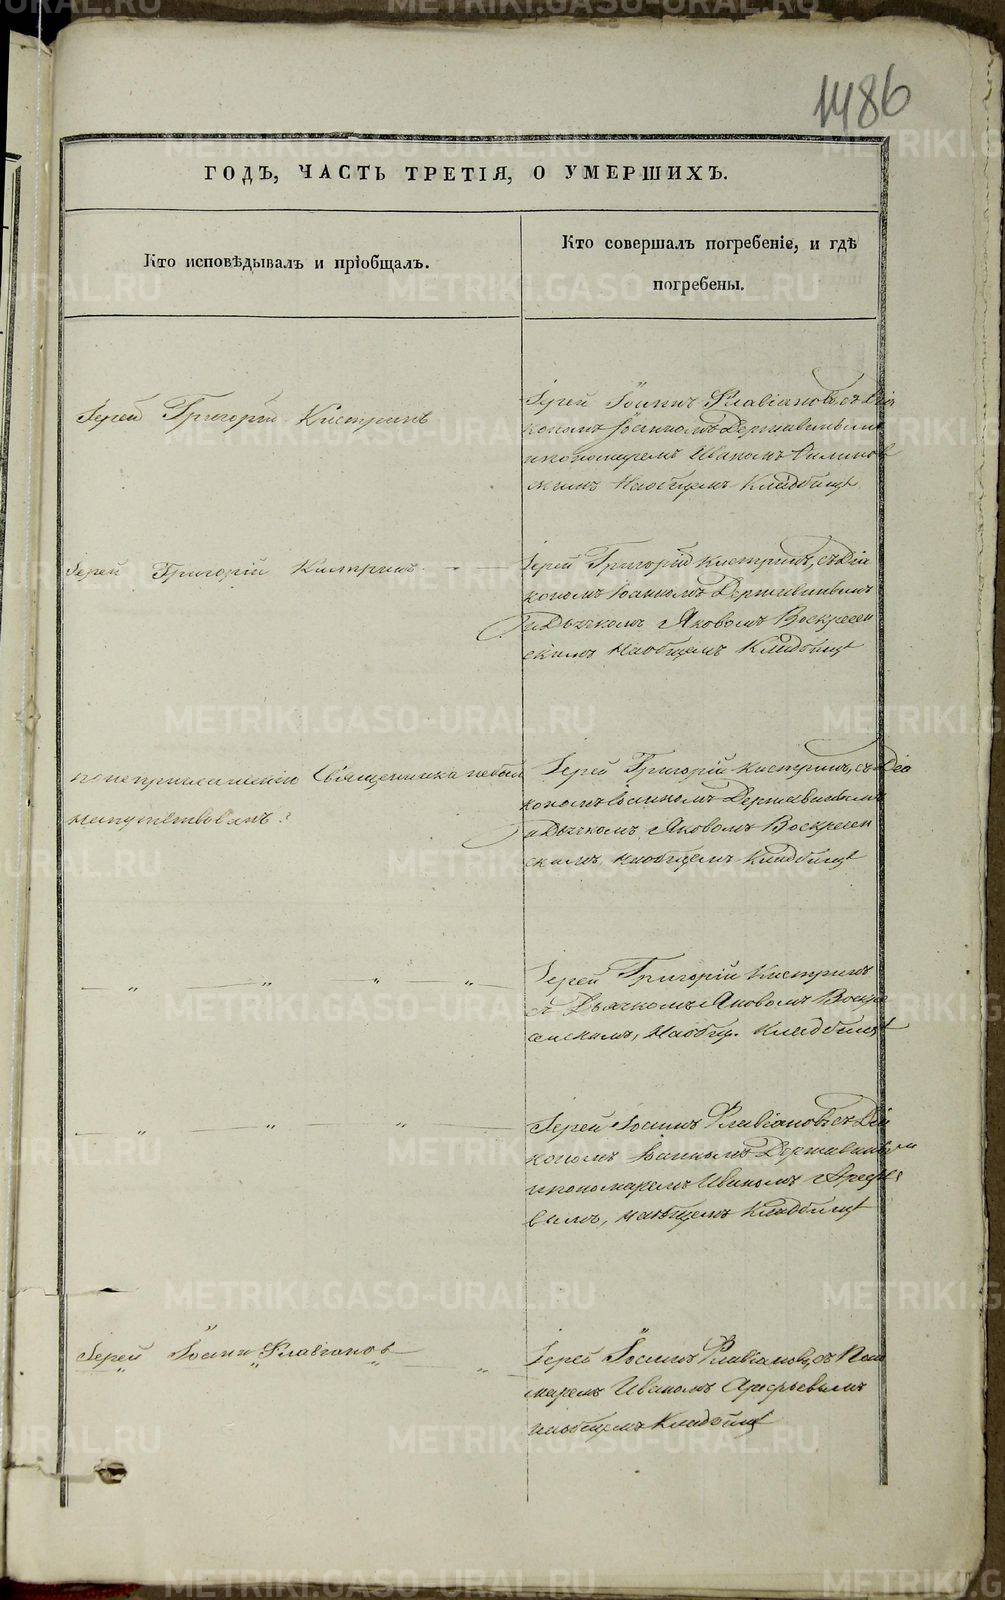 1486
ГОДЪ, ЧАСТЬ ТРЕТІЯ, О УМЕРШИХЪ.
Кто исповѣдывалъ и пріобщалъ.
Кто совершалъ погребеніе, и гдѣ
погребены.
Іерей Григорій Кистринъ
Іерей Іоаннъ Флавіановъ, съ Діа
кономъ Іоанномъ Державинымъ
и пономаремъ Иваномъ
на общемъ кладбищѣ
Іерей Григорій Кистринъ
Іерей Григорій Кистринъ, съ Діа
кономъ Іоанномъ Державинымъ
и Дьячкомъ Яковомъ Воскресен
скимъ на общемъ кладбищѣ
по неприглашенію Священника небылъ
напутствованъ.
Іерей Григорій Кистринъ, съ Діа
кономъ Іоанномъ Державинымъ
и Дьячкомъ Яковомъ Воскресен
скимъ, на общемъ кладбищѣ
Іерей Григорій Кистринъ
съ Дьячкомъ Яковомъ Воскре
сенскимъ, на общ. кладбищѣ
Іерей Іоаннъ Флавіановъ съ Діа
кономъ Іоанномъ Державинымъ
и пономаремъ Иваномъ Арефь
вымъ, на общемъ кладбищѣ
Іерей Іоаннъ Флавіановъ
Іерей Іоаннъ Флавіановъ, съ Поно
маремъ Иваномъ Арефьевымъ
на общемъ кладбищѣ
METRIKI.GASO-URAL.RU